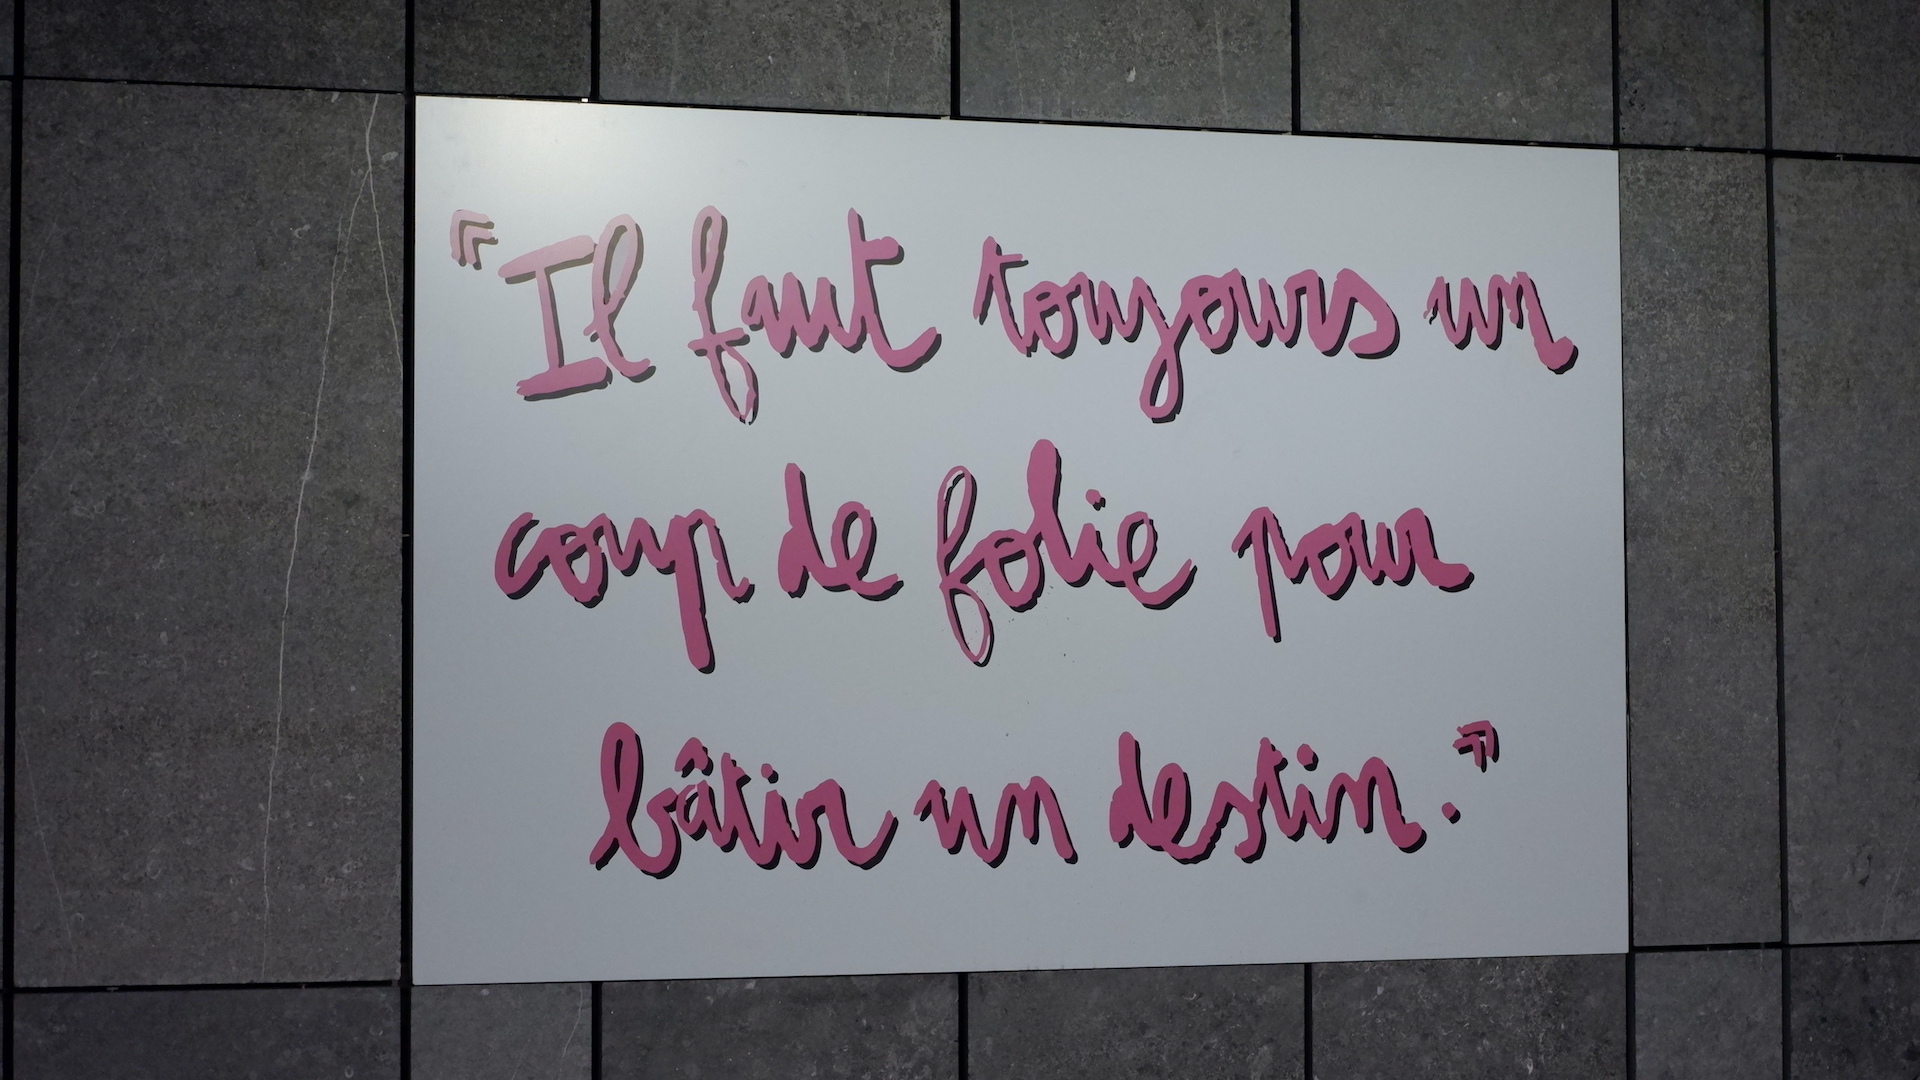 «Il faut toujours un
coup de folie pour
bâtir un destin.»